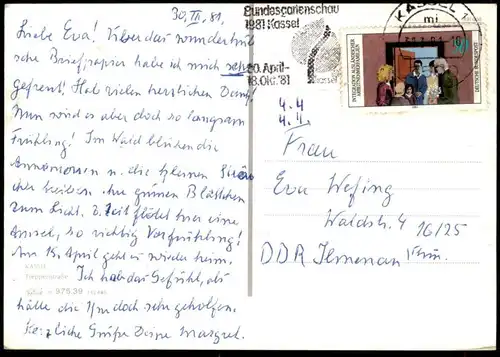 30. III. 81.
Liebe Eva! Über das wundernette
sche Briefpapier habe ich mich sehr
gefreut! Hab vielen herzlichen Dank!
Nun wird es aber doch so langsam
Frühling! Im Wald blühen die
Annemonen u. die kleinen Sträu
cher treiben ihre grünen Blättchen
zum Licht. Z. Zeit flötet hier eine
Amsel, so richtig Vorfrühling!
Am 15. April geht es wieder heim.
Ich hab das Gefühl, als
hätte die Kur doch sehr geholfen.
Herzliche Grüße Deine Margret.
KASSEL
Treppenstraße
975,39
Bundesgartenschau
1981 Kassel
30. April-
18. Okt. '81
Kassel
KASSEL
mi
INTEGRATION AUSLÄNDISCHER
ARBEITNEHMERFAMILIEN
DEUTSCHE BUNDESPOST
4.4
4.4.
Frau
Eva Wefing
Waldstr. 4
16/25
DDR Ilmenau